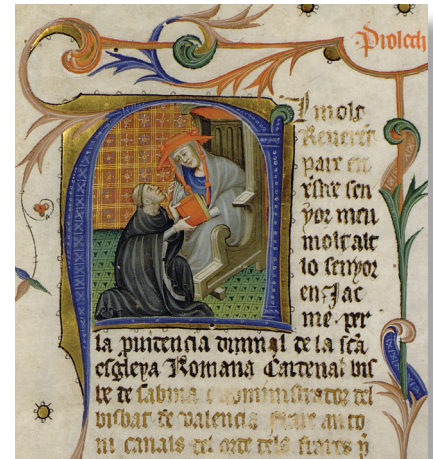 Prolech
Al molt
Reuerent
pare en
xpist sen
yor meu
molt alt
lo senyor
en Jac
me per
la puidencia diuinal de la sca
esgleya Romana Cardenal bis
be de sabina e administrador del
bisbat de valencia frare anto
ni canals del orde dels frares p